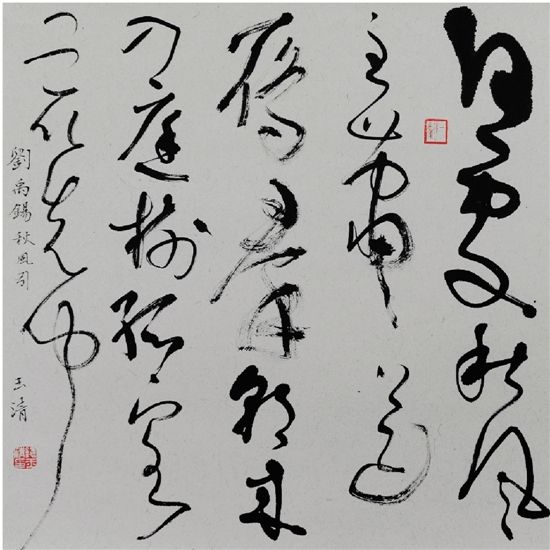 何處秋風
至蕭蕭送
鴈羣朝來
入庭樹孤客
最先聞
劉禹錫秋風引
玉清